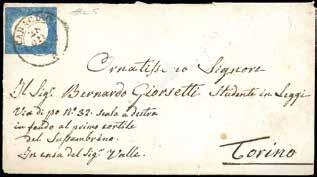 Ornatissimo Signore
Il Sig.r Bernardo Giorsetti Studente in Leggi
Via di po N.o 32. scala a destra
in fondo al primo cortile
del
In casa del Sig.r Valle.
Torino